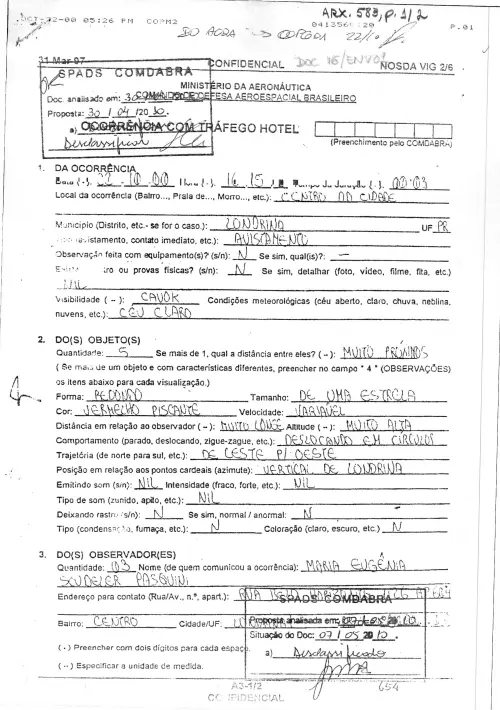 ARX. 583, p. 1/2
22-00 05:26 PM COPM2
P.01
31 Mar 97
CONFIDENCIAL
NOSDA VIG 2/6
SPADS COMDABRA
MINISTÉRIO DA AERONÁUTICA
COMANDO DE DEFESA AEROESPACIAL BRASILEIRO
Doc. analisado em:
Proposta: 30 / 04 /20 10.
a) Desclassificado
OCORRÊNCIA COM TRÁFEGO HOTEL
(Preenchimento pelo COMDABRA)
1. DA OCORRÊNCIA
Data (·): 22-10-00 Hora (·): 16:15 Tempo de duração (·): 00:03
Local da ocorrência (Bairro..., Praia de..., Morro..., etc.): CENTRO DA CIDADE
Município (Distrito, etc - se for o caso.): LONDRINA UF PR
Tipo (avistamento, contato imediato, etc.): AVISTAMENTO
Observação feita com equipamento(s)? (s/n): N Se sim, qual(is)?: —
ro ou provas físicas? (s/n): N Se sim, detalhar (foto, vídeo, filme, fita, etc.)
NIL
Visibilidade ( -- ): CAVOK Condições meteorológicas (céu aberto, claro, chuva, neblina,
nuvens, etc.): CÉU CLARO
2. DO(S) OBJETO(S)
Quantidade: 5 Se mais de 1, qual a distância entre eles? ( -- ): MUITO PRÓXIMOS
( Se mais de um objeto e com características diferentes, preencher no campo " 4 " (OBSERVAÇÕES)
os itens abaixo para cada visualização.)
Forma: REDONDO Tamanho: DE UMA ESTRELA
Cor: VERMELHO PISCANTE Velocidade: VARIÁVEL
Distância em relação ao observador ( -- ): MUITO LONGE Altitude ( -- ): MUITO ALTA
Comportamento (parado, deslocando, zigue-zague, etc.): DESLOCANDO EM CÍRCULOS
Trajetória (de norte para sul, etc.): DE LESTE P/ OESTE
Posição em relação aos pontos cardeais (azimute): VERTICAL DE LONDRINA
Emitindo som (s/n): NIL Intensidade (fraco, forte, etc.): NIL
Tipo de som (zunido, apito, etc.): NIL
Deixando rastro (s/n): N Se sim, normal / anormal: N
Tipo (condensação, fumaça, etc.): N Coloração (claro, escuro, etc.) N
3. DO(S) OBSERVADOR(ES)
Quantidade: 03 Nome (de quem comunicou a ocorrência): MARIA EUGÊNIA
SCUDELER PASQUINI
Endereço para contato (Rua/Av., n.º, apart.): RUA
SPADS COMDABRA
Bairro: CENTRO Cidade/UF:
Proposta analisada em:
( · ) Preencher com dois dígitos para cada espaço.
Situação do Doc: 07 / 05 /2010.
a) Desclassificado
( -- ) Especificar a unidade de medida.
A3-1/2
654
CONFIDENCIAL